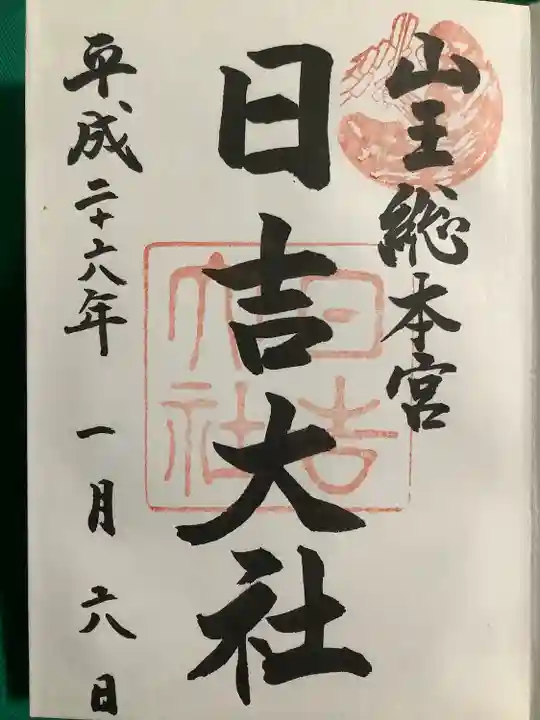 山王総本宮
日吉大社
日吉大社
平成二十六年 一月六日